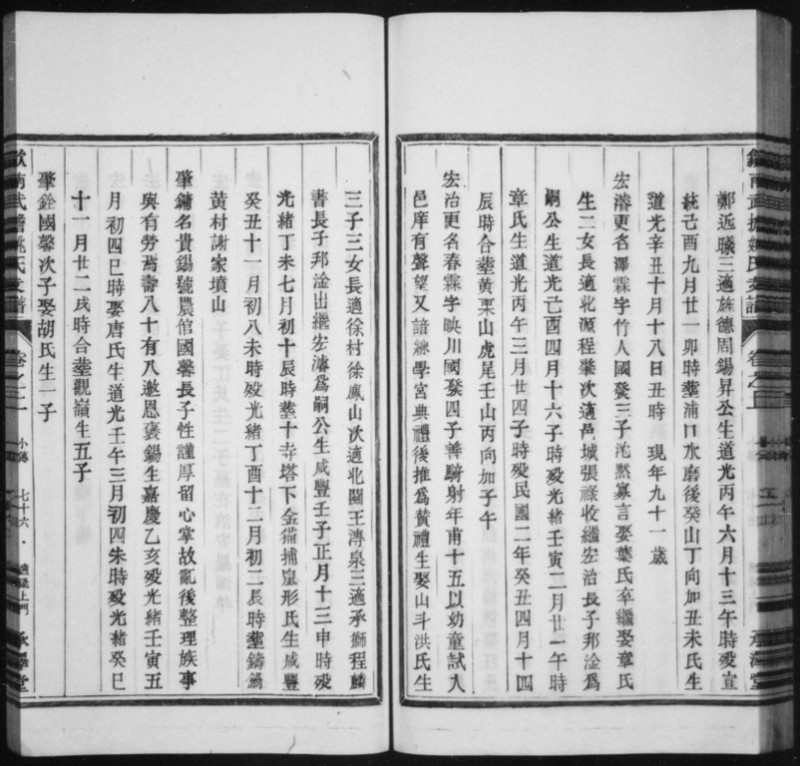 鄭近曦三適旌德周錫昇公生道光丙午六月十三午時歿宣
統己酉九月廿一卯時塟浦口水磨後癸山丁向加丑未氏生
道光辛丑十月十八日丑時 現年九十一歲
宏濬更名澤霖字竹人國癸三子沱黙寡言娶葉氏卒繼娶章氏
生二女長適北源程肇次適邑城張祿收繼宏治長子邦淦爲
嗣公生道光己酉四月十六子時歿光緒壬寅二月廿一午時
章氏生道光丙午三月廿四子時歿民國二年癸丑四月十四
辰時合塟黄栗山虎尾壬山丙向加子午
宏治更名春霖字映川國癸四子善騎射年甫十五以幼童試入
邑庠有聲望又諳練學宮典禮後推爲贊禮生娶山斗洪氏生
三子三女長適徐村徐鳳山次適北關王溥泉三適承獅程麟
書長子邦淦出繼宏濬爲嗣公生咸豐壬子正月十三申時歿
光緒丁未七月初十辰時塟十寺塔下金貓捕鼠形氏生咸豐
癸丑十一月初八未時歿光緒丁酉十二月初二辰時塟鑄鍋
黃村謝家墳山
肇鏞名貴錫號農倌國馨長子性謹厚留心掌故亂後整理族事
與有勞焉壽八十有八邀恩褒錫生嘉慶乙亥歿光緒壬寅五
月初四巳時娶唐氏生道光壬午三月初四未時歿光緒癸巳
十一月廿二戌時合塟觀嶺生五子
肇銓國馨次子娶胡氏生一子
卷之二
小傳
七十六